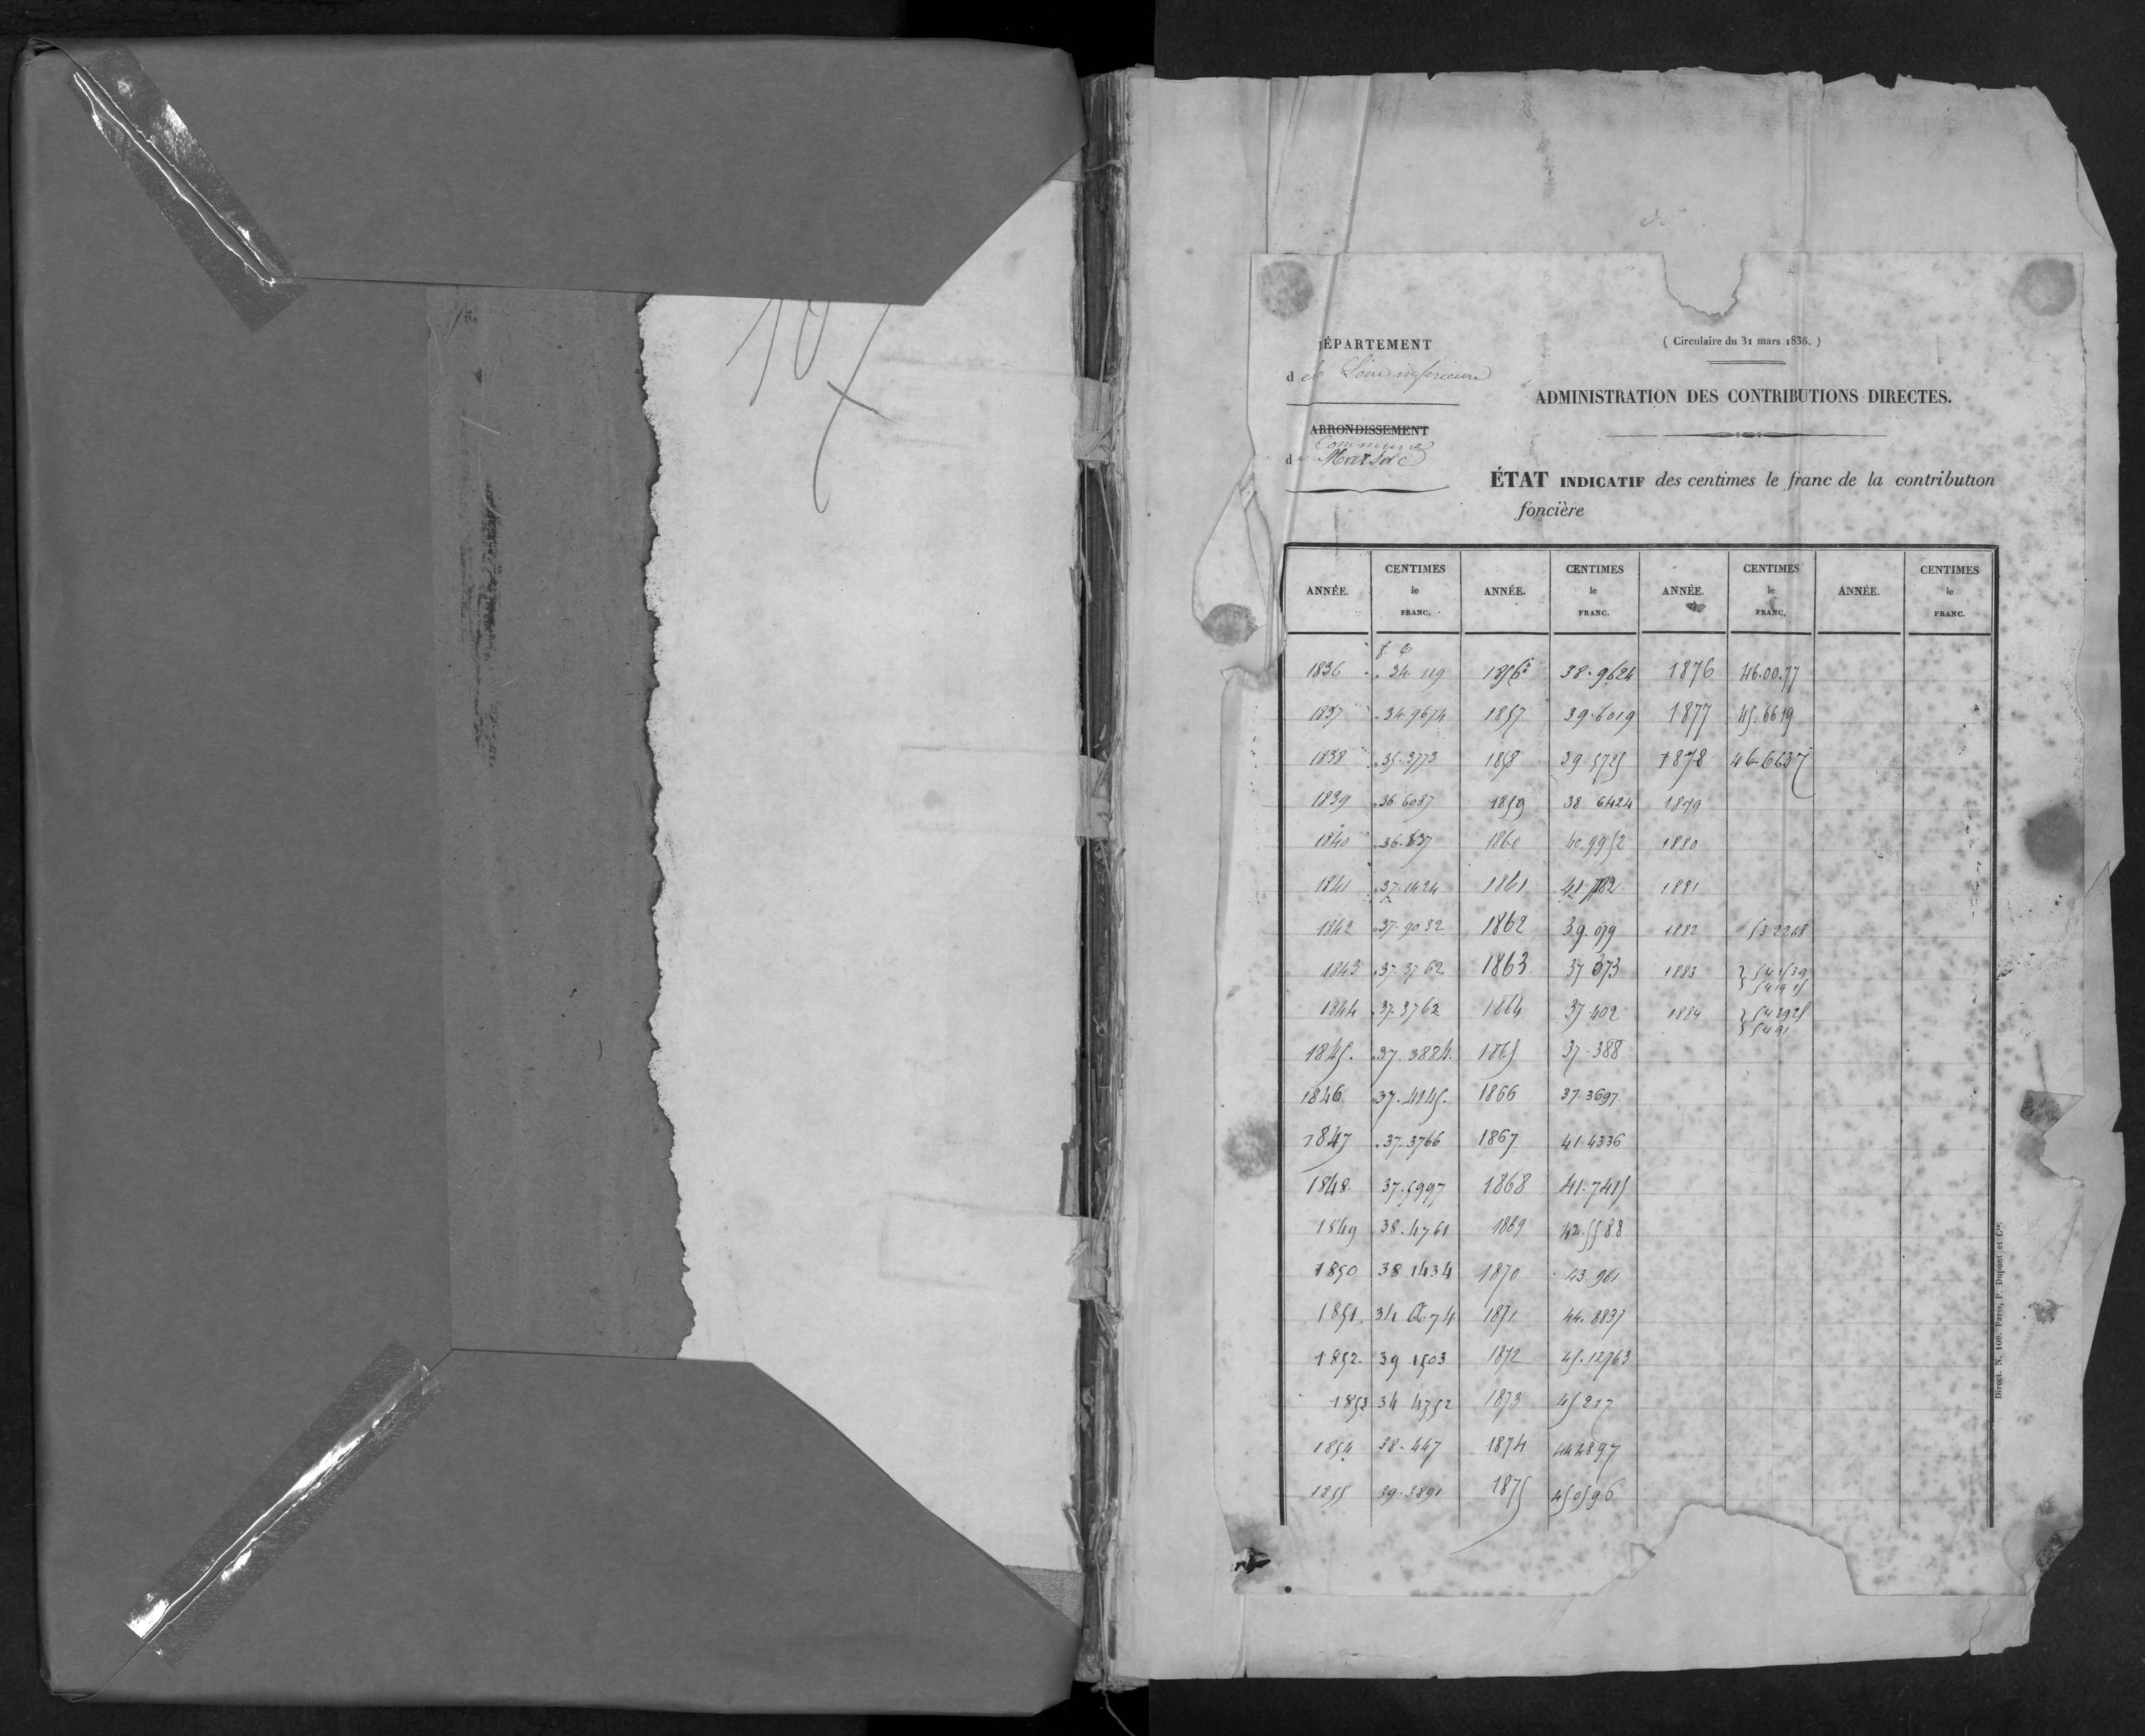 10
DÉPARTEMENT
de la Loire inférieure
ARRONDISSEMENT
Commune
de Marsac
( Circulaire du 31 mars 1836. )
ADMINISTRATION DES CONTRIBUTIONS DIRECTES.
ÉTAT INDICATIF des centimes le franc de la contribution
foncière
ANNÉE. CENTIMES le FRANC. ANNÉE. CENTIMES le FRANC. ANNÉE. CENTIMES le FRANC. ANNÉE. CENTIMES le FRANC.
f. c
1836 34 119 1856 38.9624 1876 46.00.77
1837 34.9674 1857 39.6019 1877 45.6619
1838 35.3773 1858 39 5725 1878 46-6637
1839 36 6087 1859 38 6424 1879
1840 36.637 1860 40.9952 1880
1841 37.1424 1861 41.782 1881
1842 37.9032 1862 39.079 1882 53 2268
1843 37.3762 1863 37 073 1883
1844 37.3762 1864 37.402 1884
1845. 37.3884. 1865 37.388
1846 37.4145. 1866 37.3697
1847 37.3766 1867 41.4336
1848. 37.5997 1868 41.7415
1849 38.4761 1869 42.5588
1850 38 1434 1870 43 961
1851. 34 1871 44.8837
1852. 39 1503 1872 45.12763
1853 34 4752 1873 45 217
1854 38.447 1874 44 4897
1855 39.3891 1875 45 0596
Direct. N. 108. Paris, P. Dupont et Cie.